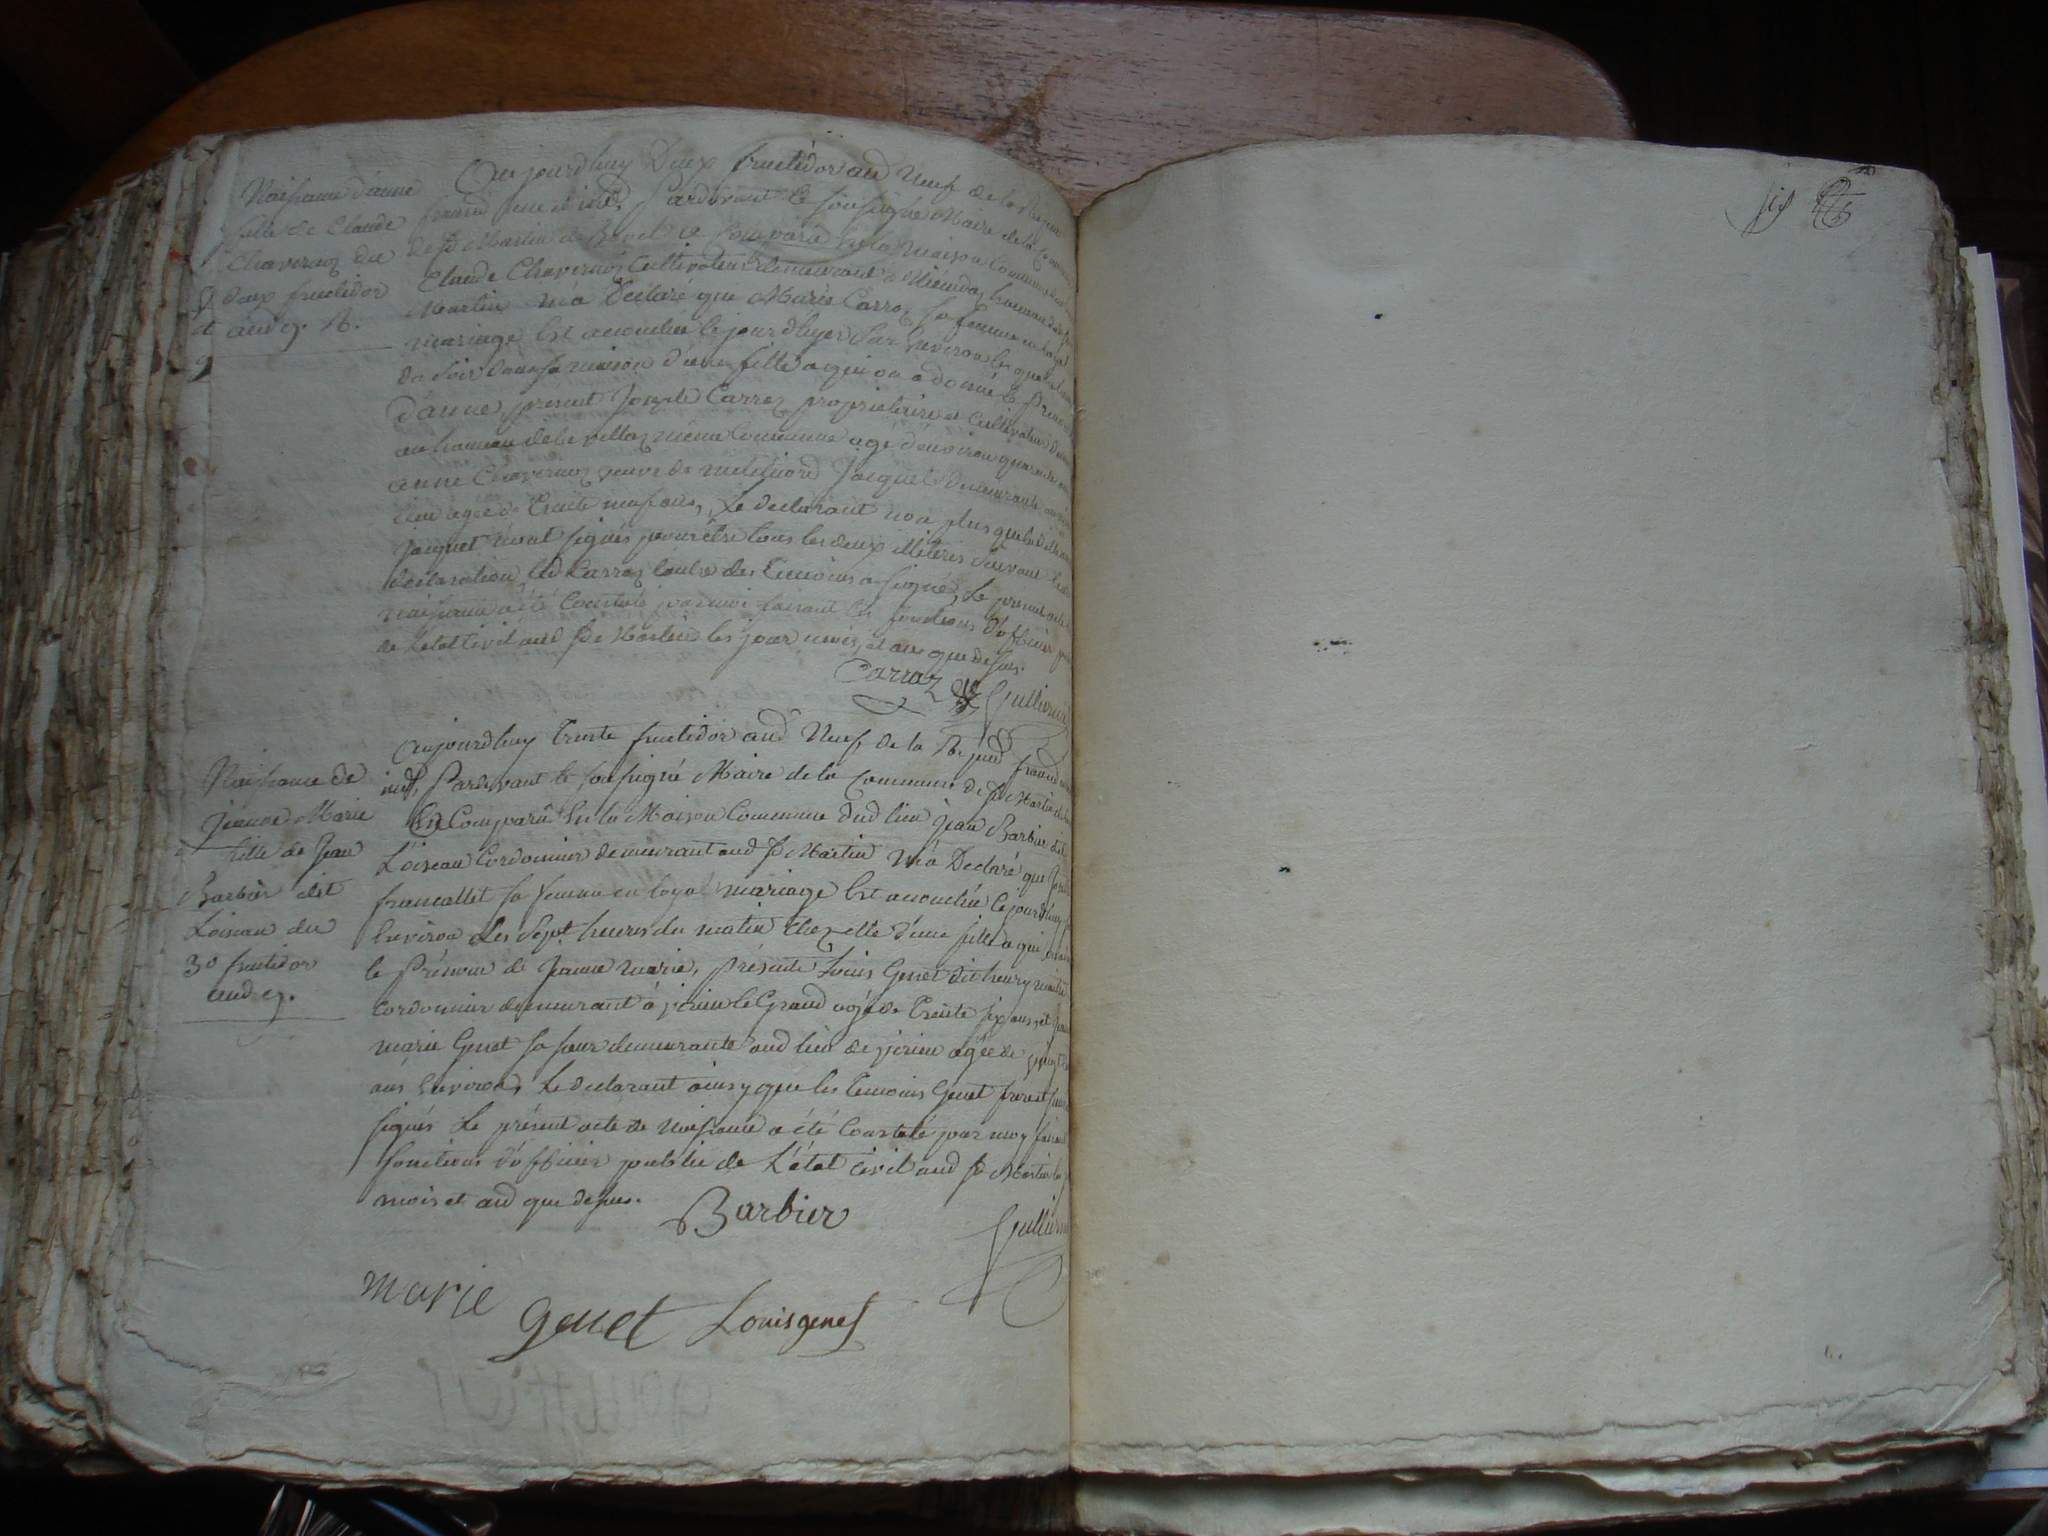 Naissance d'anne
fille de Claude
Chavernoz du
deux fructidor
and 9. R.
Aujourdhuy Deux fructidor and Neuf de la
par devant le soussigné Maire de la
de St Martin de est Comparû en la maison Commune
Claude Chavernoz Cultivateur demeurant a hameau
Martin m'a Declaré que Marie Carroz sa femme en loyal
mariage Est accouchée le jour d'hyer sur Environ les
du soir dans sa maison d'une fille a qui on a donné le Prenom
d'anne, present Joseph Carroz propriétaire et Cultivateur
au hameau de la villaz même Commune agé d'environ quarante
anne Chavernoz veuve de Jacquet Demeurante au
lieu agée de Trente neuf ans, Le declarant non plus que ladite
Jacquet n'ont signés pour être tous les deux illiteris suivant leur
declaration, led Carroz l'autre des Temoins a signé, Le present acte de
naissance a été Constaté par moi faisant les fonctions d'officier
de L'état Civil aud St Martin les jour mois et an que dessus.
Carroz
Naissance de
Jeanne Marie
fille de Jean
Barbier dit
Loiseau du
30 fructidor
and 9.
Aujourdhuy Trente fructidor and Neuf de la
Pardevant le soussigné Maire de la Commune de St Martin
Est Comparû En la Maison Commune dud lieu Jean Barbier dit
L'oiseau Cordonnier demeurant aud St Martin m'a Declaré que
francallet sa femme en loyal mariage Est accouchée Cejourdhuy
Environ Les Sept heures du matin chez elle d'une fille a qui
le Prénom de Jeanne marie, présents Louis Genet dit henry
Cordonnier demeurant à le Grand agé de Trente six ans, et
marie Genet sa sœur demeurante aud lieu de agée de vingt
ans Environ, Le declarant ainsy que les Temoins Genet frere et
signés Le présent acte de Naissance a été Constaté par moy
fonctions d'officier public de L'état Civil aud St Martin les
mois et and que dessus.
Barbier
marie
genet Louis genet
six